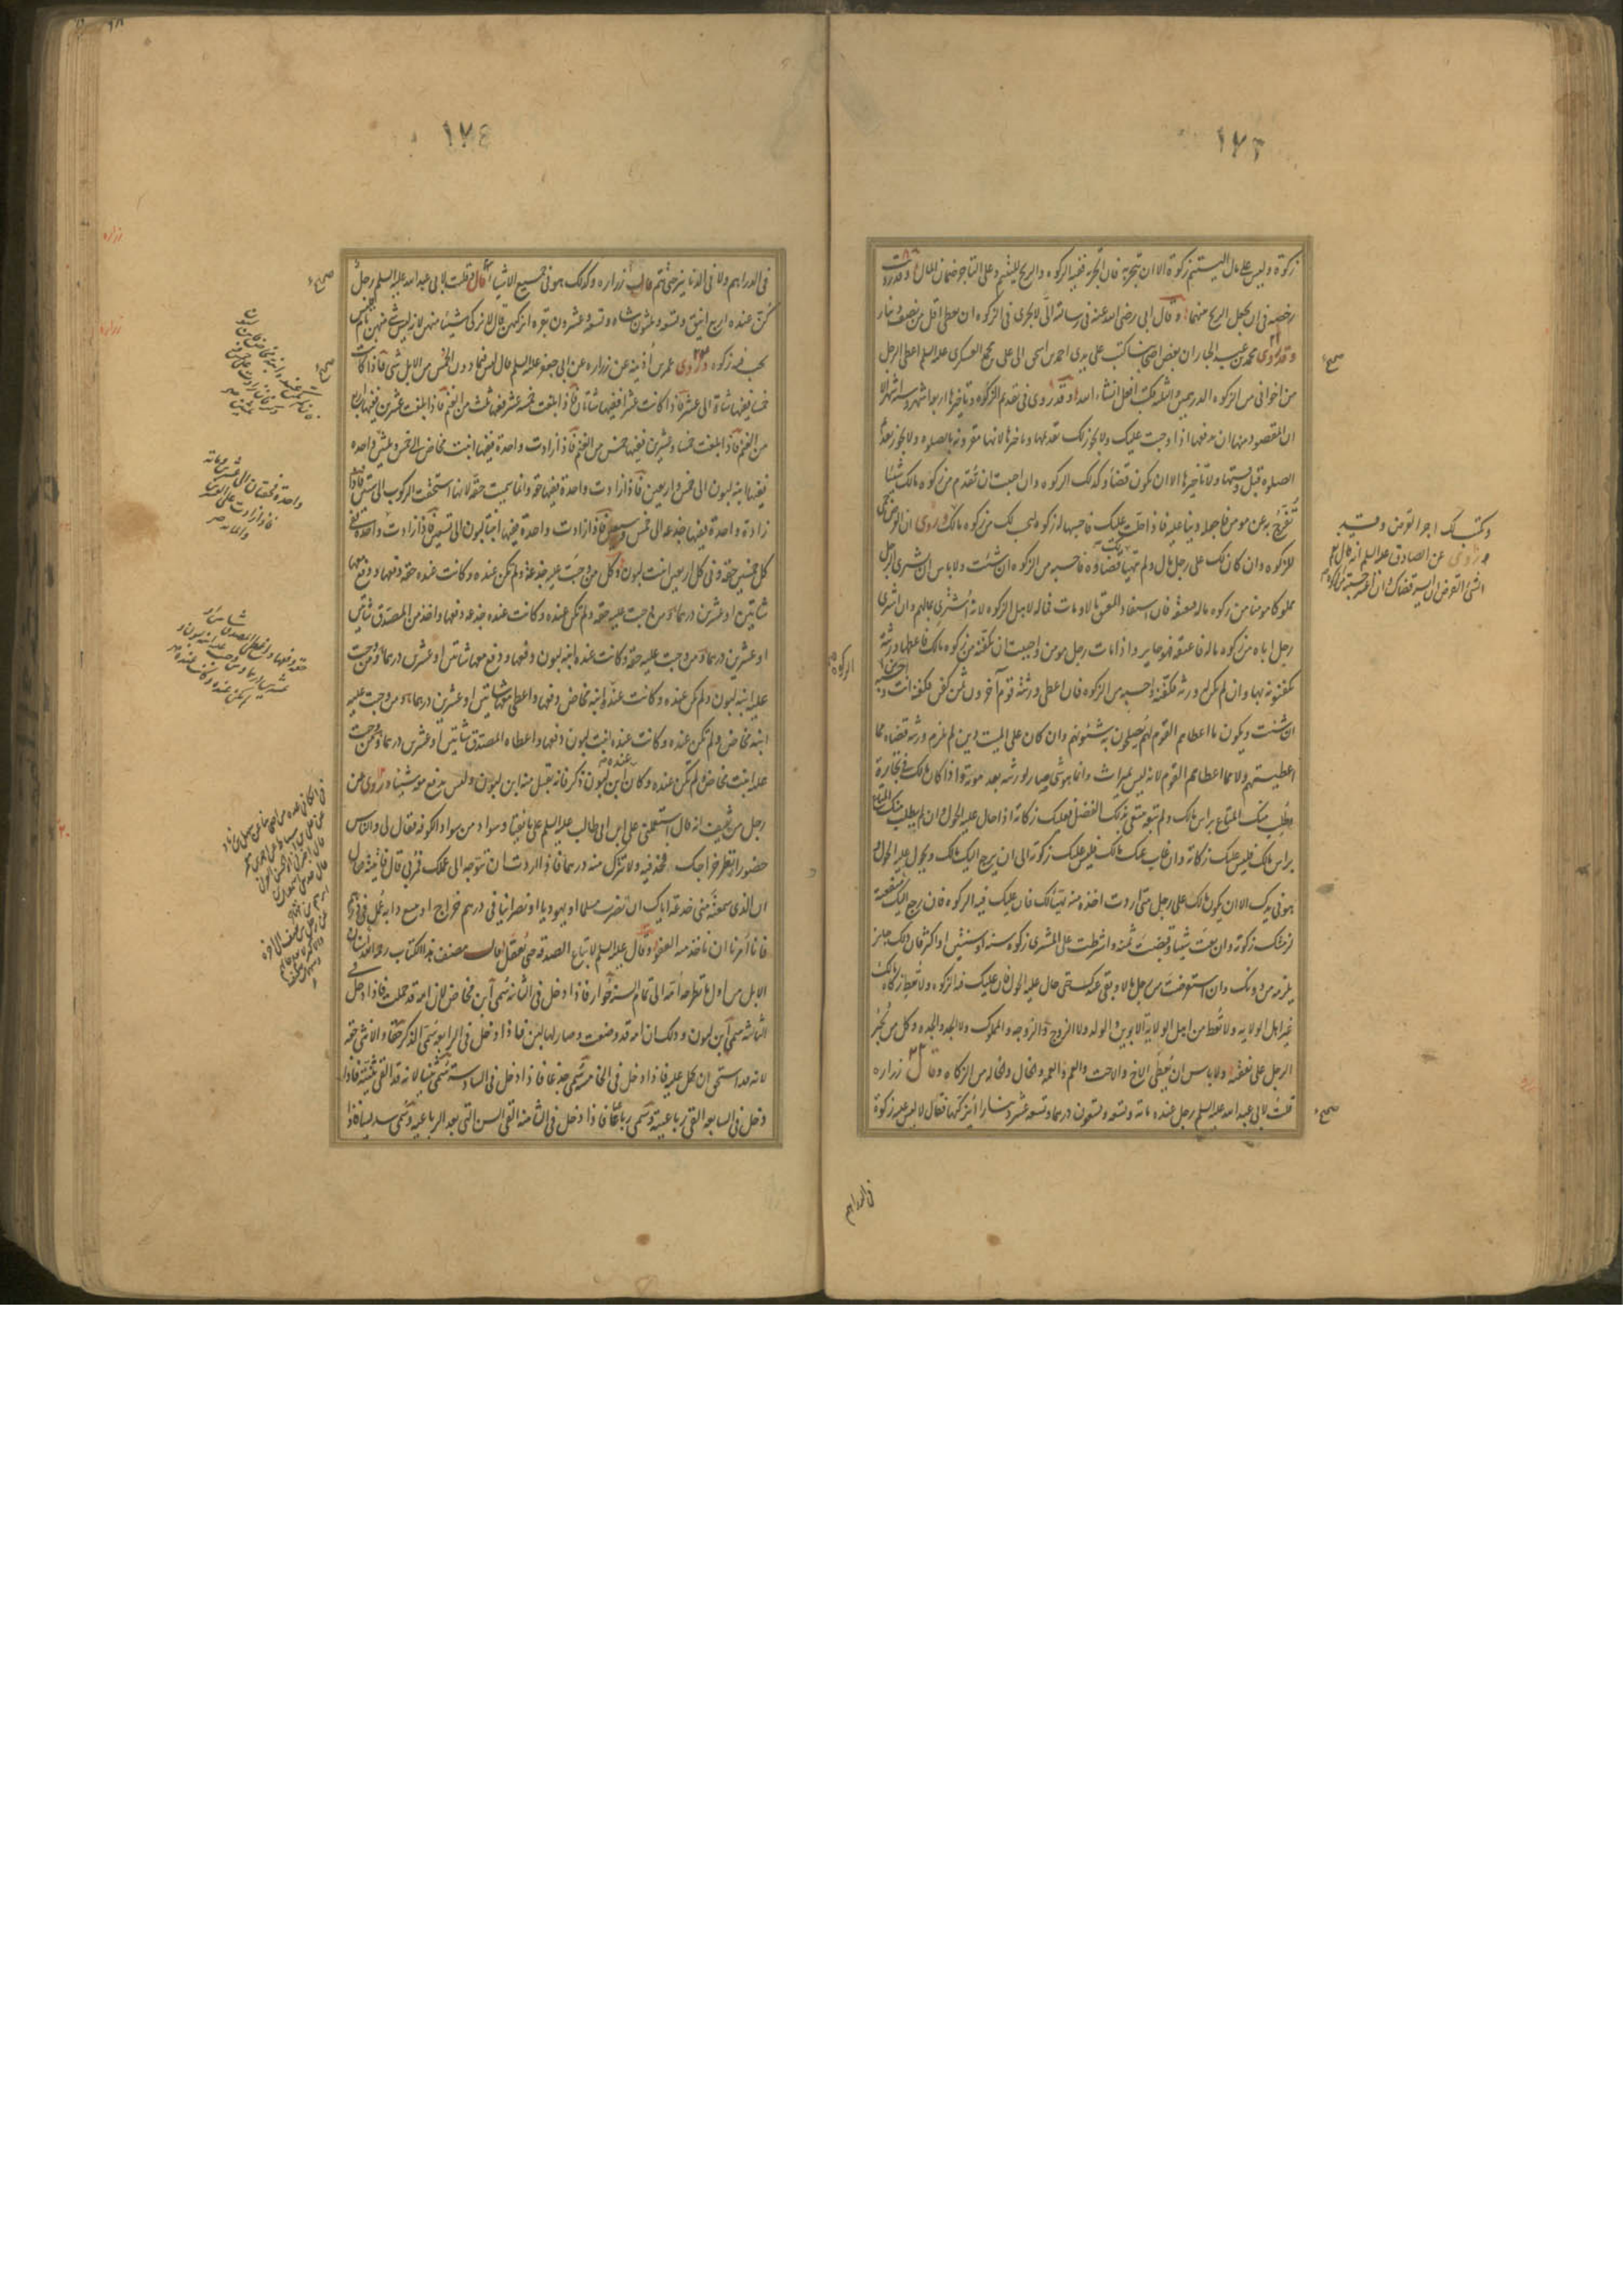 ١٧٣
زكوة وليس على مال اليتيم زكوة الا ان تتجر به فان اتجر به ففيه الزكوه والربح لليتيم وعلى التاجر ضمان المال وقد رويت
رخصه فى ان يجعل الربح بينهما وقال ابى رضى الله عنه فى رسالته الىّ لا يجزى فى الزكوه ان يعطى اقل من نصف دينار
وقد روى محمد بن عبد الجبار ان بعض اصحابنا كتب على يدى احمد بن اسحق الى على بن محمد العسكرى عليه السلم اعطى الرجل
من اخوانى من الزكوه الدرهمين والثلثه فكتب افعل انشاء الله وقد روى فى تقديم الزكوه وتاخيرها اربعة اشهر وستة اشهر الا
ان المقصود منها ان تدفعها اذا وجبت عليك ولا يجوز لك تقديمها وتاخيرها لانها مقرونه بالصلوه ولا يجوز تقديم
الصلوه قبل وقتها ولا تاخيرها الا ان يكون قضاء وكذلك الزكوه وان احببت ان تقدم من زكوه مالك شيئا
تفرج به عن مومن فاجعله دينا عليه فاذا حلت عليك فاحسبها له زكوه ليحسب لك من زكوه مالك وروى ان القرض حمى
للزكوه وان كان لك على رجل مال ولم يتهيا قضاؤه فاحسبه من الزكوه ان شئت ولا باس ان يشترى الرجل
مملوكا مومنا من زكوه ماله فيعتقه فان استفاد المعتق مالا ومات فماله لاهل الزكوه لانه اشترى بمالهم وان اشترى
رجل اباه من زكوه ماله فاعتقه فهو جايز واذا مات رجل مومن واحببت ان تكفنه من زكوه مالك فاعطها ورثته
يكفنونه بها وان لم يكن له ورثه فكفنه واحسبه من الزكوه فان اعطى ورثته قوم آخرون ثمن كفن فكفنه انت واحسبه
ان شئت ويكون ما اعطاهم القوم لهم يصلحون به شئونهم وان كان على الميت دين لم يلزم ورثته قضاه مما
اعطيتهم ولا مما اعطاهم القوم لانه ليس بميراث وانما هو شى صار لورثته بعد موته واذا كان مالك فى تجارة
وطلب منك المتاع براس مالك ولم تبعه تبتغى بذلك الفضل فعليك زكاته اذا حال عليه الحول وان لم يطلب منك المتاع
براس مالك فليس عليك زكاته وان غاب عنك مالك فليس عليك زكوته الى ان يرجع اليك مالك ويحول عليه الحول و
هو فى يدك الا ان يكون مالك على رجل متى اردت اخذه منه تهيا لك فان عليك فيه الزكوه فان رجع اليك منفعته
لزمتك زكوته وان بعت شيئا وقبضت ثمنه واشترطت على المشترى زكوه سنه او سنتين او اكثر فان ذلك جايز
يلزمه من دونك وان استقرضت من رجل مالا وبقى عندك حتى حال عليه الحول فان عليك فيه الزكوه ولا تعط زكاة مالك
غير اهل الولايه ولا تعط من اهل الولايه الابوين والولد ولا الزوج والزوجه والمملوك ولا الجد والجده وكل من يجبر
الرجل على نفقته ولا باس ان يعطى الاخ والاخت والعم والعمه والخال والخاله من الزكاه وقال زراره
قلت لابى عبد الله عليه السلم رجل عنده مائه وتسعه وتسعون درهما وتسعه عشر دينارا ايزكيها فقال لا ليس عليه زكوة
فى الدراهم
صحيح
صحيح
وروى عن الصادق عليه السلم انه قال نعم
الشئ القرض ان ايسر قضاك وان اعسر حسبته من الزكوه
١٧٤
فى الدراهم ولا فى الدنانير حتى يتم قال زراره وكذلك هو فى جميع الاشياء قال وقلت لابى عبد الله عليه السلم رجل
كن عنده اربع اينق وتسعه وثلثون شاه وتسعه وعشرون بقره ايزكيهن قال لا يزكى شيئا منهن لانه ليس شئ منهن تام فليس
يجب فيه زكوه وروى عمر بن اذينه عن زراره عن ابى جعفر عليه السلم قال ليس فيما دون الخمس من الابل شى فاذا كانت
خمسا ففيها شاة الى عشر فاذا كانت عشرا ففيها شاتان فاذا بلغت خمسة عشر ففيها ثلث من الغنم فاذا بلغت عشرين ففيها اربع
من الغنم فاذا بلغت خمسا وعشرين ففيها خمس من الغنم فاذا زادت واحدة ففيها ابنت مخاض الى خمس وثلثين واحده
ففيها ابنه لبون الى خمس واربعين فاذا زادت واحدة ففيها حقه وانما سميت حقه لانها استحقت الركوب الى ستين فاذا
زادة واحدة ففيها جذعه الى خمس وسبعين فاذا زادت واحدة ففيها ابنتا لبون الى تسعين فاذا زادت واحده ففى
كل خمسين حقه وفى كل اربعين ابنت لبون وكل من وجبت عليه جذعة ولم تكن عنده وكانت عنده حقه دفعها ودفع معها
شاتين او عشرين درهما ومن وجبت عليه حقه ولم تكن عنده وكانت عنده جذعه دفعها واخذ من المصدق شاتين
او عشرين درهما ومن وجبت عليه حقه وكانت عنده ابنه لبون دفعها ودفع معها شاتين او عشرين درهما ومن وجبت
عليه ابنه لبون ولم تكن عنده وكانت عنده ابنه مخاض دفعها واعطى معها شاتين او عشرين درهما ومن وجبت عليه
ابنه مخاض ولم تكن عنده وكانت عنده ابنت لبون دفعها واعطاه المصدق شاتين او عشرين درهما ومن وجبت
عليه ابنت مخاض ولم تكن عنده وكان عنده ابن لبون ذكر فانه يقبل منه ابن لبون وليس يدفع معه شيئا وروى عن
رجل من ثقيف انه قال استعملنى على بن ابى طالب عليه السلم على بانقيا وسواد من سواد الكوفه فقال لى والناس
حضور انظر خراجك فجد فيه ولا تترك منه درهما فاذا اردت ان تتوجه الى عملك فمر بى قال فاتيته فقال لى
ان الذى سمعته منى خدعة اياك ان تضرب مسلما او يهوديا او نصرانيا فى درهم خراج او تبيع دابه عمل فى درهم
فانا امرنا ان ناخذ منه العفو وقال عليه السلم لا تباع الصدقه حتى تعقل قال مصنف هذا الكتاب رحمه الله اسنان
الابل من اول ما تطرحه امه الى تمام السنه حوار فاذا دخل فى الثانيه سمى ابن مخاض لان امه قد حملت فاذا دخل فى
الثالثه سمى ابن لبون وذلك ان امه قد وضعت وصار لها لبن فاذا دخل فى الرابعه سمى الذكر حقا والانثى حقه
لانه قد استحق ان يحمل عليه فاذا دخل فى الخامسه سمى جذعا فاذا دخل فى السادسه سمى ثنيا لانه قد القى ثنيته فاذا
دخل فى السابعه القى رباعيته وسمى رباعا فاذا دخل فى الثامنه القى السن التى بعد الرباعيه وسمى سديسا فاذا
صحيح
صحيح
واحدة فحقتان الى عشرين ومائه
فاذا زادت على العشرين
والمائه